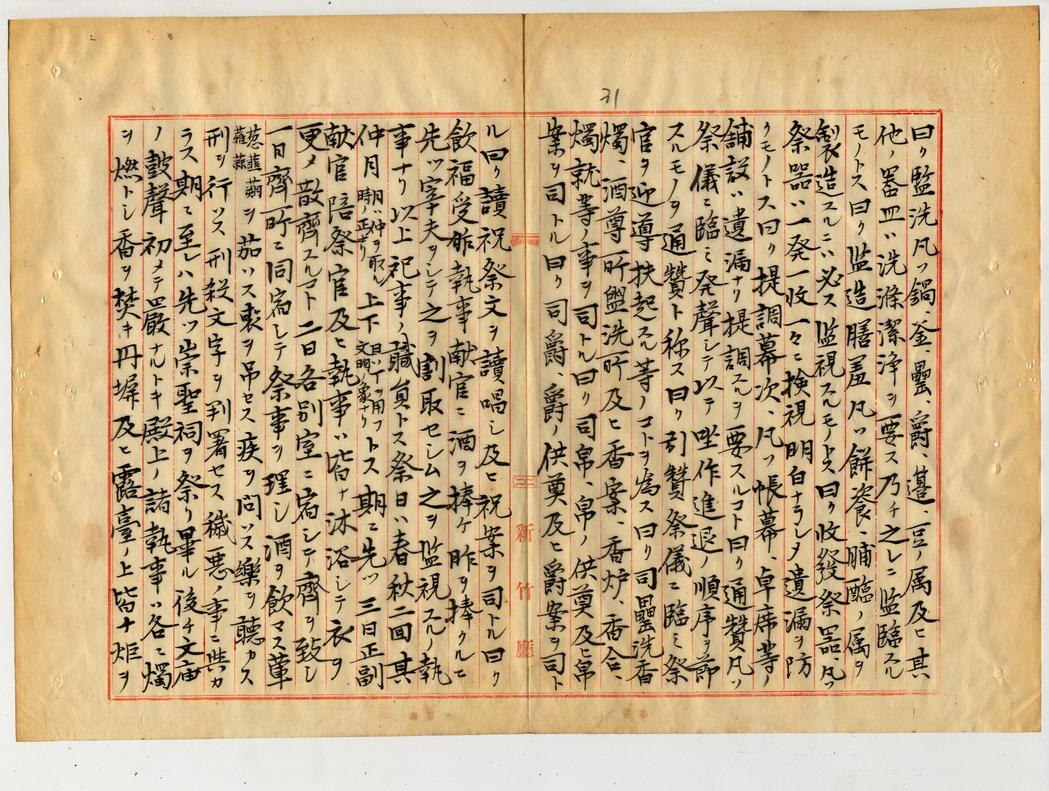 31
曰ク監洗凡ソ鍋、釜、罍、爵、籩、豆ノ属及ヒ其
他ノ器皿ハ洗滌潔浄ヲ要ス乃チ之レニ監臨スル
モノトス曰ク監造膳羞凡ソ餅餈、脯醢ノ属ヲ
製造スルニハ必ス監視スルモノトス曰ク收發祭器凡ソ
祭器ハ一発一收一々ニ検視明白ナラシメ遺漏ヲ防
クモノトス曰ク提調幕次、凡ソ帳幕、卓席等ノ
舗設ハ遺漏ナリ提調スルヲ要スルコト曰ク通贊凡ソ
祭儀ニ臨ミ発聲シテ以テ坐作進退ノ順序ヲ節
スルモノヲ通贊ト称ス曰ク引贊祭儀ニ臨ミ祭
官ヲ迎導扶起スル等ノコトヲ為ス曰ク司罍洗香
燭、酒尊所盥洗所及ヒ香案、香炉、香合、
燭就等ノ事ヲ司トル曰ク司帛、帛ノ供奠及ヒ帛
案ヲ司トル曰ク司爵、爵ノ供奠及ヒ爵案ヲ司ト
新竹廳
ル曰ク讀祝祭文ヲ讀唱シ及ヒ祝案ヲ司トル曰ク
飲福受胙執事献官ニ酒ヲ捧ケ胙ヲ捧クルニ
先ツ宰夫ヲシテ之ヲ割取セシム之ヲ監視スルノ執
事ナリ以上祀事ノ職員トス祭日ハ春秋二回其
仲月月ハ仲ヲ取ル時ノ正ナリ上丁日ハ丁ヲ用フ文明ノ象ナリトス期ニ先ツ三日正副
献官陪祭官及ヒ執事ハ皆ナ沐浴シテ衣ヲ
更メ散齊スルコト二日各別室ニ宿シテ齊ヲ致シ
一日齊所ニ同宿シテ祭事ヲ理シ酒ヲ飲マス葷
葱韮薤蒜ヲ茹ハス喪ヲ吊セス疾ヲ問ハス樂ヲ聽カス
刑ヲ行ハス刑殺文字ヲ判署セス穢悪ノ事ニ與カ
ラス期ニ至レハ先ツ崇聖祠ヲ祭リ畢ル後チ文庙
ノ鼓聲初メテ嚴ナルトキ殿上ノ諸執事ハ各ニ燭
ヲ燃トシ香ヲ焚キ丹墀及ヒ露臺ノ上皆ナ炬ヲ